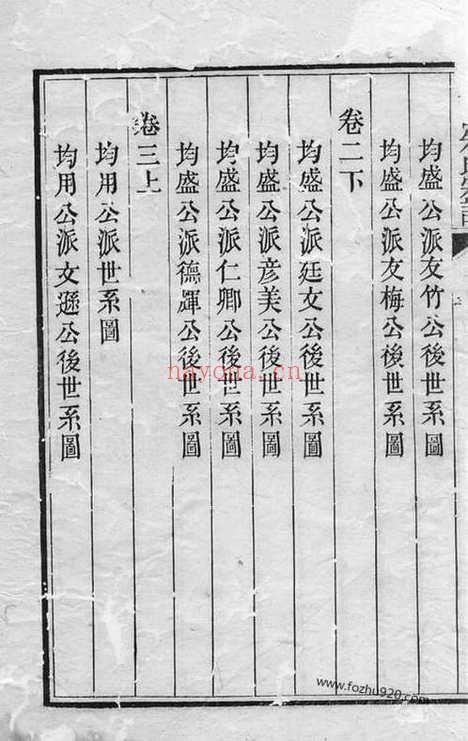 均盛公派友竹公後世系圖
均盛公派友梅公後世系圖
卷二下
均盛公派廷文公後世系圖
均盛公派彥美公後世系圖
均盛公派仁卿公後世系圖
均盛公派德輝公後世系圖
卷三上
均用公派世系圖
均用公派文遜公後世系圖
nayona.cn
www.fozhu920.com